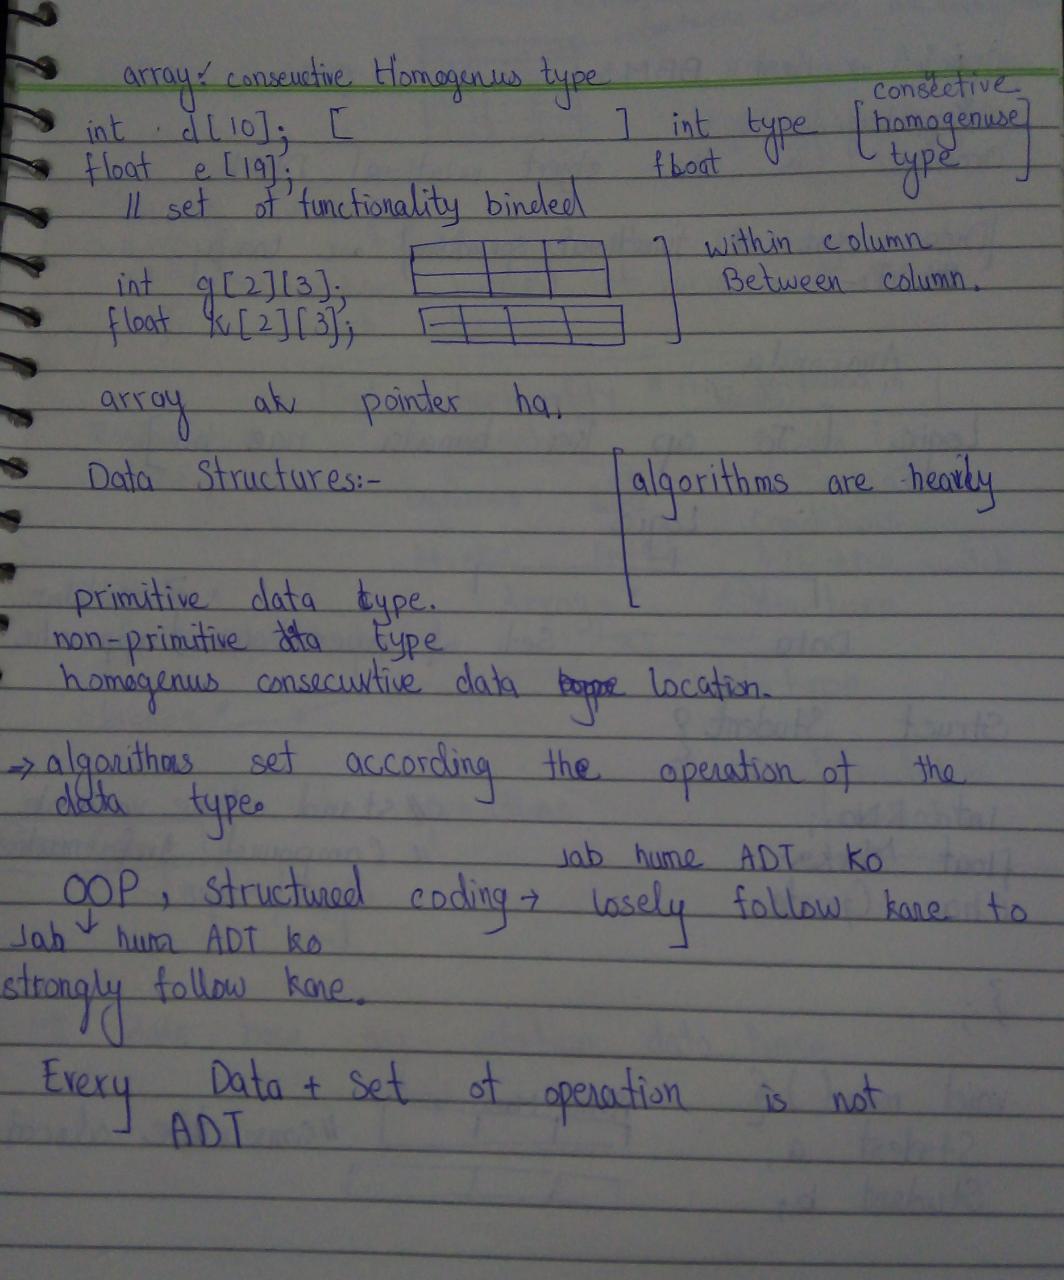 array: conseuctive Homogenus type
consective
int d[10]; [ ] int type [homogenuse
float e[19]; float type]
// set of functionality binded
within column
int g[2][3]; Between column.
float k[2][3];
array ak pointer ha.
Data Structures:- algorithms are heavily
primitive data type.
non-primitive data type
homogenus consecuvtive data location.
→ algorithms set according the operation of the
data type.
Jab hume ADT ko
OOP, Structured coding → losely follow kare to
Jab hum ADT ko
strongly follow kare.
Every Data + set of operation is not
ADT